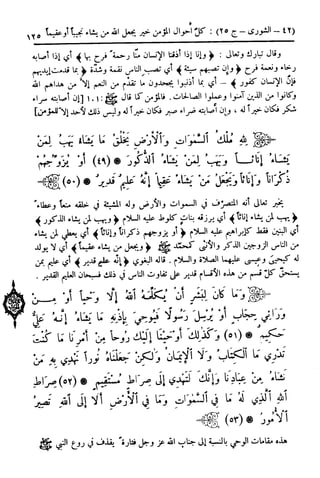 (٤٢ – الشورى – ج ٢٥) : كلّ أحوال المؤمن خير يجعل الله من يشاء نجيباً أو عقيماً ١٢٥
وقال تبارك وتعالى : ﴿ وإنا إذا أذقنا الإنسان منا رحمة فرح بها ﴾ أي إذا أصابه
رخاء ونعمة فرح ﴿ وإن تصبهم سيئة ﴾ أي تصب الناس نقمة وشدة ﴿ بما قدمت أيديهم
فإنّ الإنسان كفور ﴾ – أي بما أذنبوا يجحدون ما تقدّم من النعم إلاّ من هداهم الله
وكانوا من الذين آمنوا وعملوا الصالحات. فالمؤمن كما قال ١٠١: [إن أصابته سراء
شكر فكان خير له، وإن أصابته ضراء صبر فكان خير له وليس ذلك لأحد إلا للمؤمن]
لِلَّهِ مُلْكُ السَّمَوَاتِ وَالأَرْضِ يَخْلُقُ مَا يَشَاءُ يَهَبُ لِمَنْ
يَشَاءُ إِنَاثاً وَيَهَبُ لِمَنْ يَشَاءُ الذُّكُورَ * (٤٩) أَوْ يُزَوِّجُهُمْ
ذُكْرَاناً وَإِنَاثاً وَيَجْعَلُ مَنْ يَشَاءُ عَقِيماً إِنَّهُ عَلِيمٌ قَدِيرٌ * (٥٠)
يخبر تعالى أنه المتصرّف في السموات والأرض وله المشيئة في خلقه منعاً وعطاءً
﴿ يهب لمن يشاء إناثاً ﴾ أي يرزقه بناتٍ كلوط عليه السلام ﴿ ويهب لمن يشاء الذكور ﴾
أي البنين فقط كإبراهيم عليه السلام ﴿ أو يزوجهم ذكراناً وإناثاً ﴾ أي يعطي لمن يشاء
من الناس الزوجين الذكر والأنثى كمحمّد ﷺ ﴿ ويجعل من يشاء عقيماً ﴾ أي لا يولد
له كيحيى وعيسى عليهما الصلاة والسلام . قاله البغوي ﴿ إنّه عليم قدير ﴾ أي عليم بمن
يستحق كلّ قسم من هذه الأقسام قدير على تفاوت الناس في ذلك فسبحان العليم القدير .
وَمَا كَانَ لِبَشَرٍ أَنْ يُكَلِّمَهُ اللهُ إِلَّا وَحْياً أَوْ مِنْ
وَرَائِ حِجَابٍ أَوْ يُرْسِلَ رَسُولاً فَيُوحِيَ بِإِذْنِهِ مَا يَشَاءُ إِنَّهُ عَلِيٌّ
حَكِيمٌ * (٥١) وَكَذَلِكَ أَوْحَيْنَا إِلَيْكَ رُوحاً مِنْ أَمْرِنَا مَا كُنْتَ
تَدْرِي مَا الْكِتَابُ وَلَا الإِيمَانُ وَلَكِنْ جَعَلْنَاهُ نُوراً نَهْدِي بِهِ مَنْ
نَشَاءُ مِنْ عِبَادِنَا وَإِنَّكَ لَتَهْدِي إِلَى صِرَاطٍ مُسْتَقِيمٍ * (٥٢) صِرَاطِ
اللهِ الَّذِي لَهُ مَا فِي السَّمَوَاتِ وَمَا فِي الأَرْضِ أَلَا إِلَى اللهِ تَصِيرُ
الأُمُورُ * (٥٣)
هذه مقامات الوحي بالنسبة إلى جناب الله عز وجل فتارة يقذف في روع النبي ﷺ